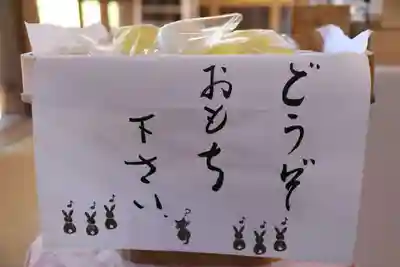 どうぞ
おもち
下さい、